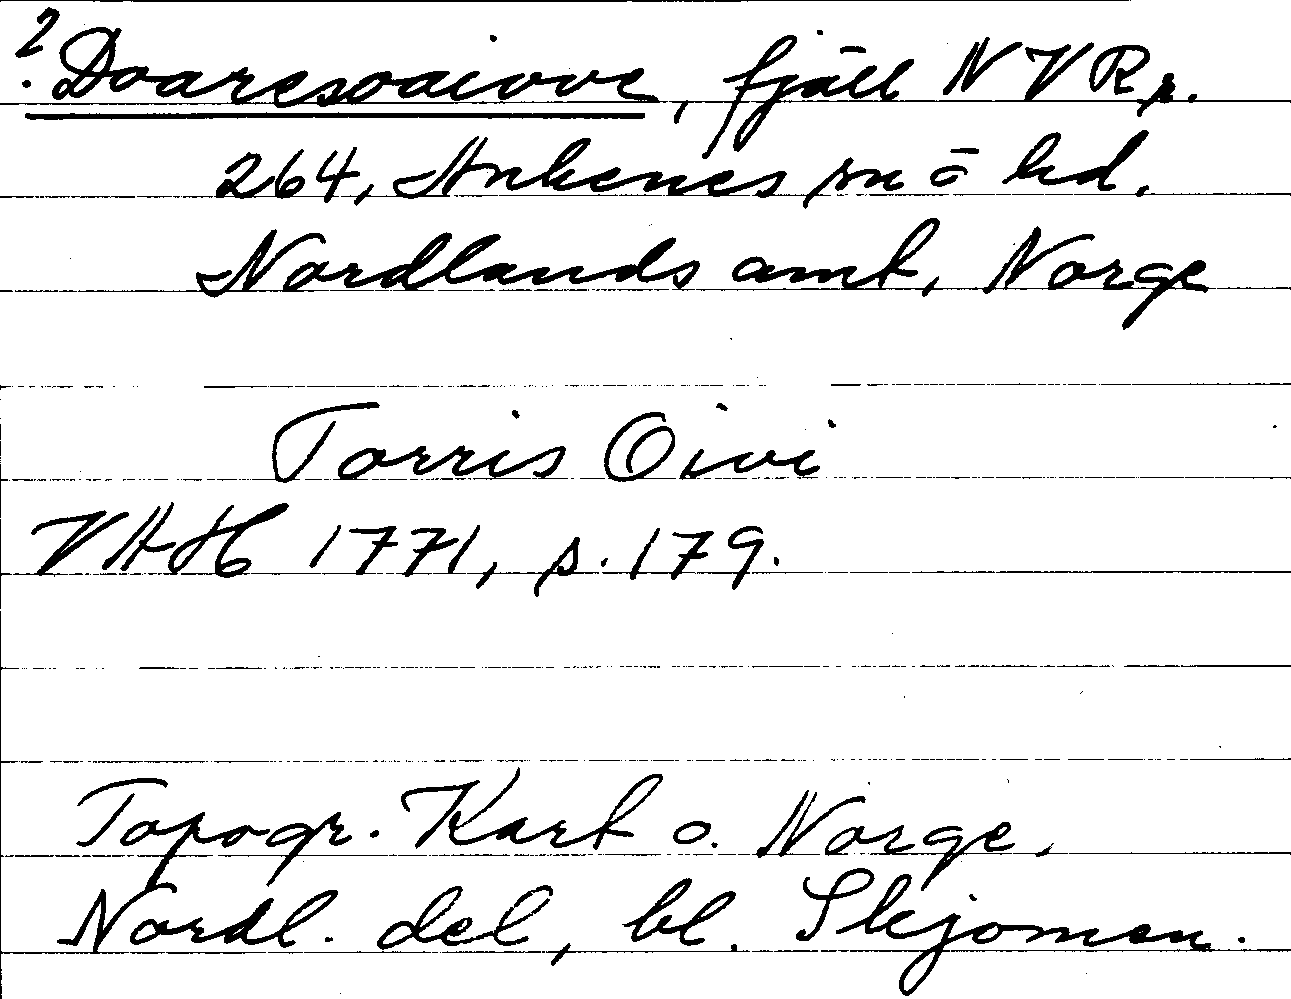 ? Doaresoaivve, fjäll NV Rr.
264, Ankenes sn o hd.
Nordlands amt, Norge
Torris Oivi
VAH 1771, s. 179.
Topogr. Kart o. Norge,
Nordl. del, bl. Skjomen.